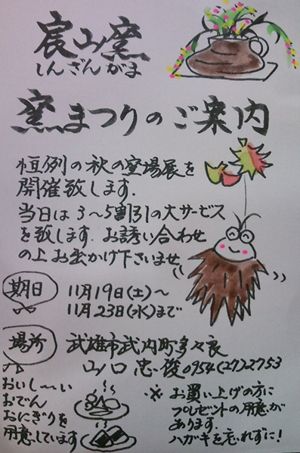 宸山窯
しんざんがま
窯まつりのご案内
恒例の秋の窯場展を
開催致します.
当日は3〜5割引の大サービス
を致します.お誘い合わせ
の上お出かけ下さいませ
期日
11月19日(土)〜
11月23日(水)まで
場所
武雄市武内町多々良
山口忠俊0954(27)2753
おいし〜い
おでん
おにぎりを
用意しています
※お買い上げの方に
プレゼントの用意が
あります.
ハガキを忘れずに!